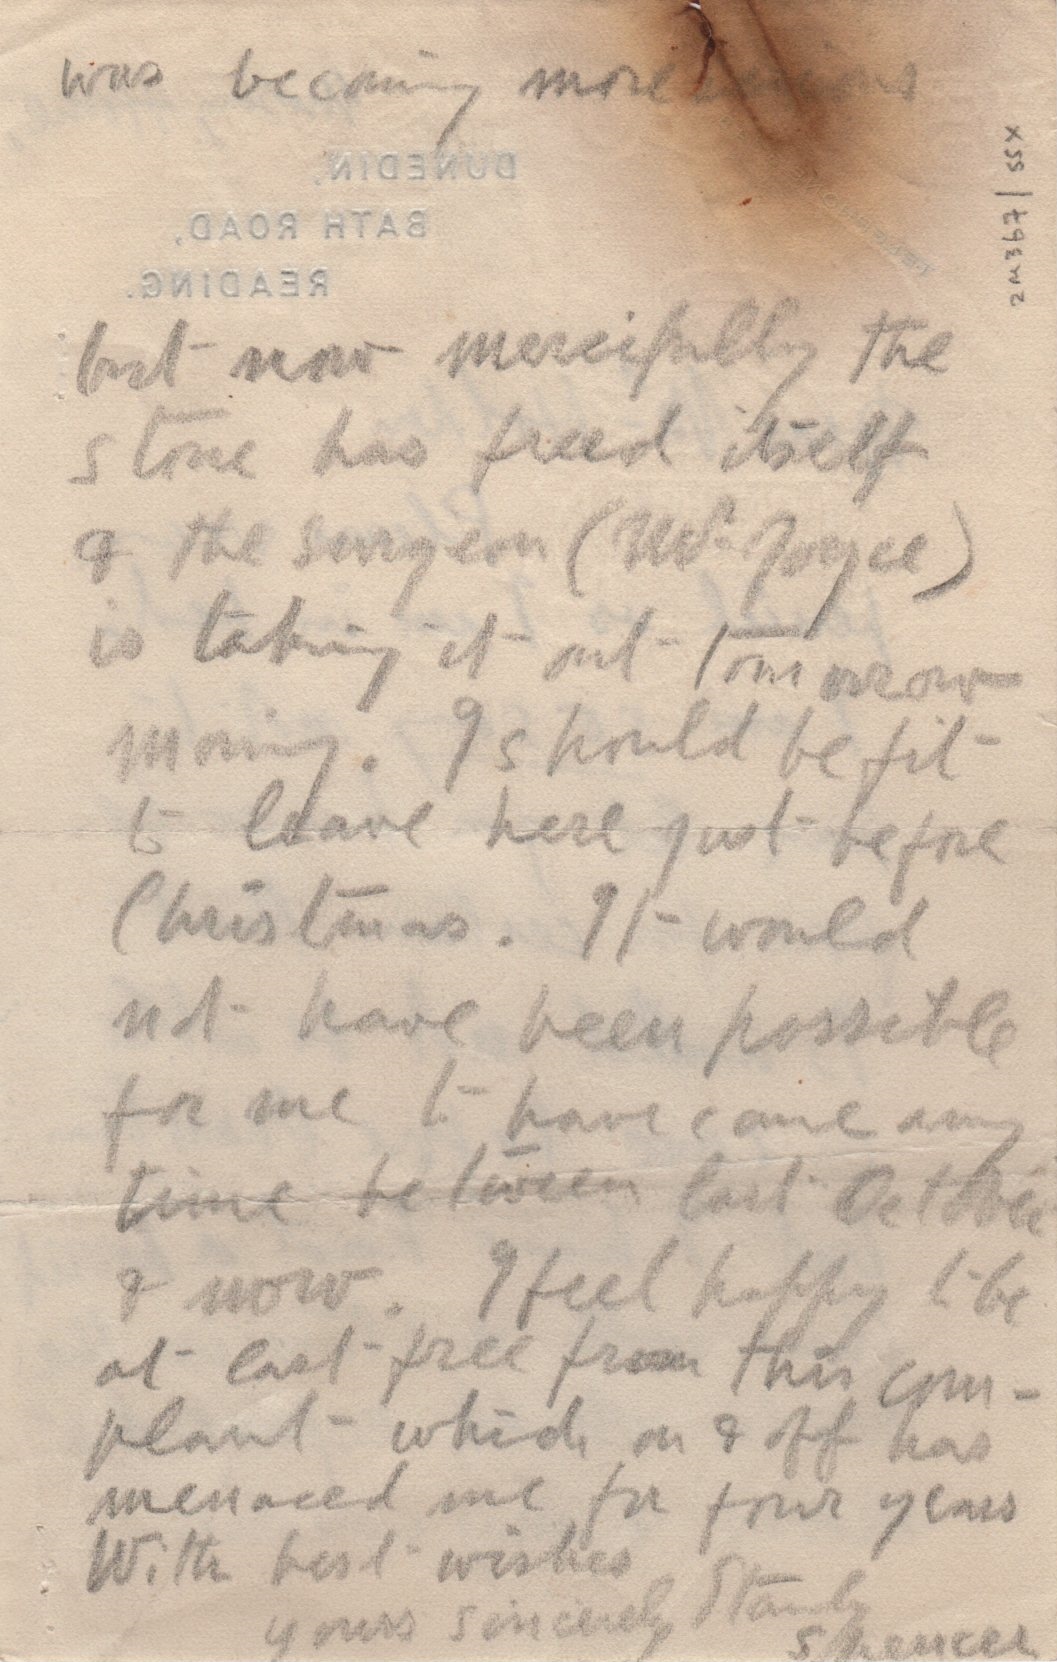 was becoming more serious
DUNEDIN,
BATH ROAD,
READING.
2M367/SSX
but now mercifully the
stone has freed itself
& the surgeon (Mr Joyce)
is taking it out tomorrow
morning. I should be fit
to leave here just before
Christmas. It would
not have been possible
for me to have come any
time between last October
& now. I feel happy to be
at last free from this com-
plaint which on & off has
menaced me for four years
With best wishes
yours sincerely Stanley
Spencer